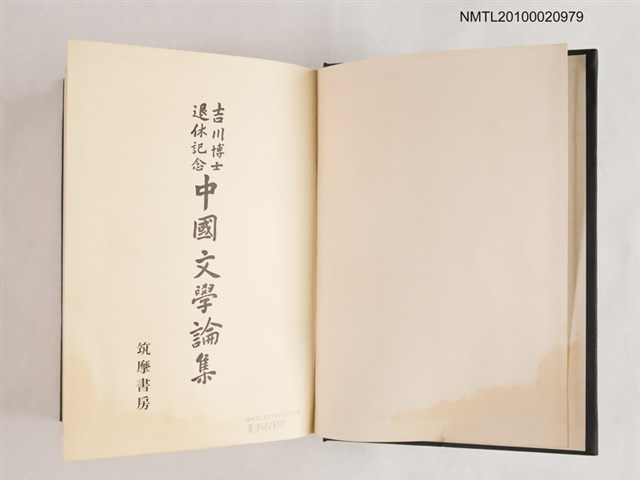 NMTL20100020979
吉川博士
退休記念
中國文學論集
筑摩書房